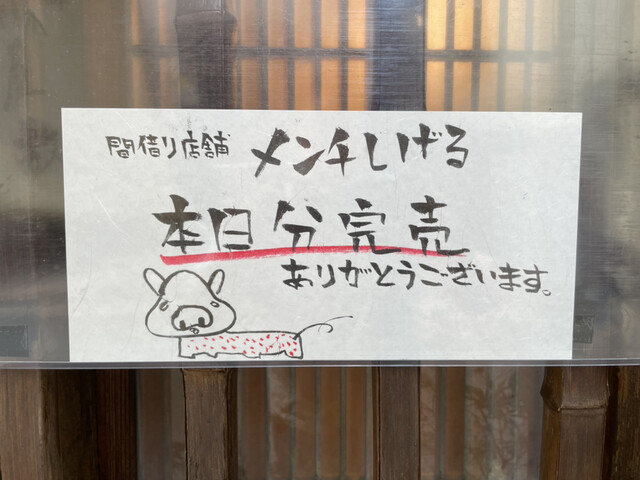 間借り店舗 メンチしげる
本日分完売
ありがとうございます。